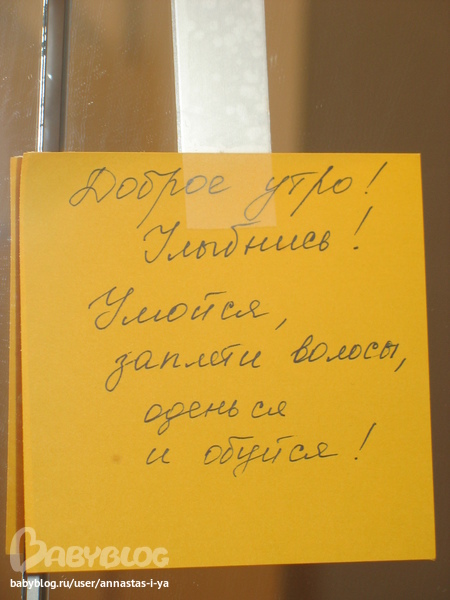 Доброе утро!
Улыбнись!
Умойся,
заплети волосы,
оденься
и обуйся!
BABYBLOG
babyblog.ru/user/annastas-i-ya